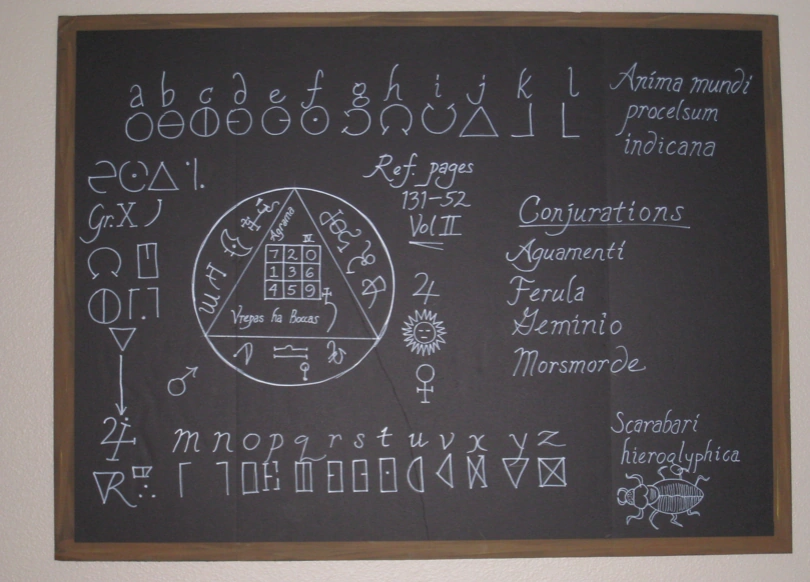 a b c d e f g h i j k l
Anima mundi
procelsum
indicana
Ref. pages
131–52
Vol II
Gr. X
Conjurations
Aguamenti
Ferula
Geminio
Morsmorde
Agrama
IV
7 2 0
1 3 6
4 5 9
Vrepas ha Bocas
m n o p q r s t u v x y z
Scarabari
hieroglyphica